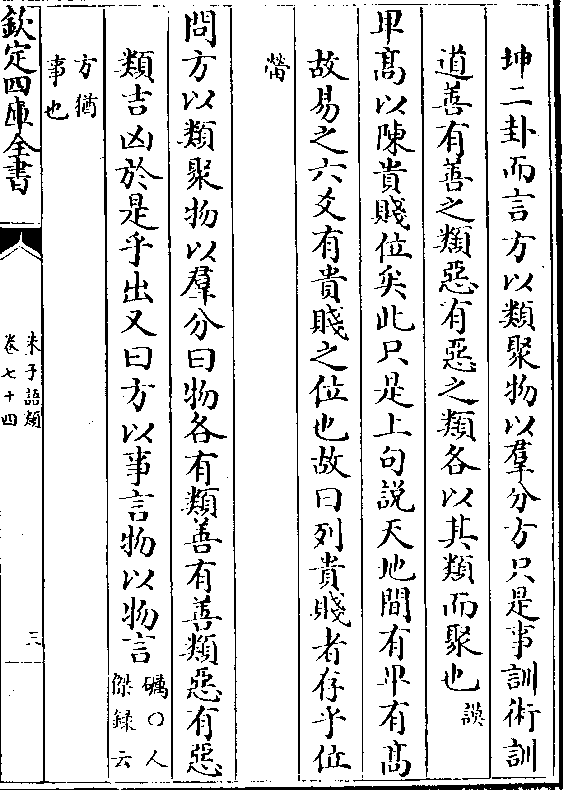 坤二卦而言方以類聚物以羣分方只是事訓術訓
道善有善之類惡有惡之類各以其類而聚也謨
卑高以陳貴賤位矣此只是上句説天地間有卑有高
故易之六爻有貴賤之位也故曰列貴賤者存乎位
㽦
問方以類聚物以羣分曰物各有類善有善類惡有惡
類吉凶於是乎出又曰方以事言物以物言礪〇人
傑録云
方猶
事也
欽定四庫全書
朱子語類
卷七十四
三